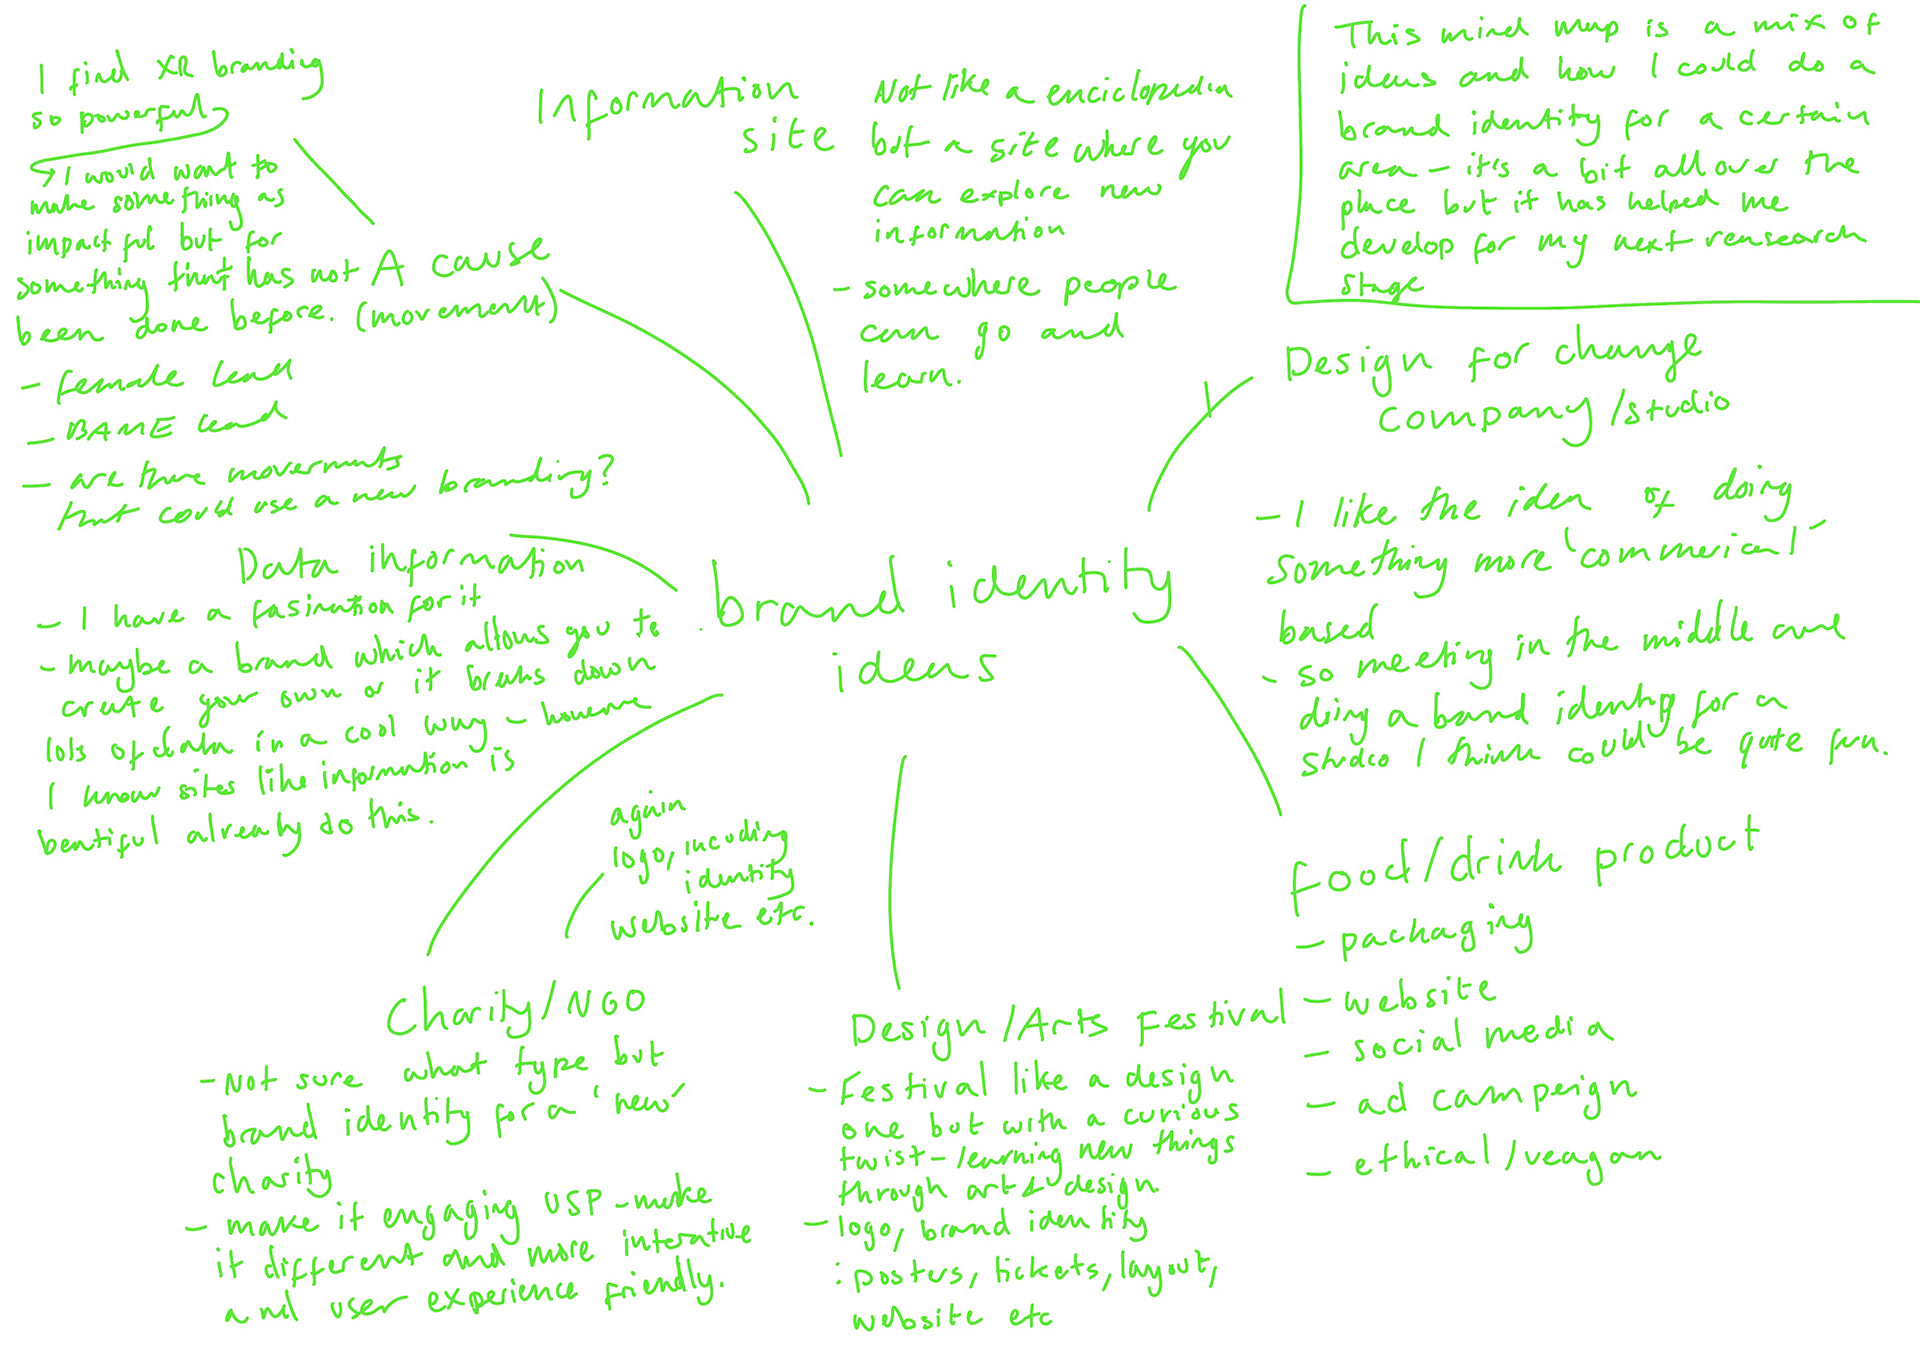 I find XR branding
so powerful
I would want to
make something as
impactful but for
something that has not
been done before.
A cause
(movement)
- female lead
- BAME lead
- are there movements
that could use a new branding?
Information
site
Not like a enciclopedia
but a site where you
can explore new
information
- somewhere people
can go and
learn.
This mind map is a mix of
ideas and how I could do a
brand identity for a certain
area - it's a bit all over the
place but it has helped me
develop for my next rensearch
stage
Design for change
company/studio
- I like the idea of doing
something more 'commerical'
based
- so meeting in the middle and
doing a band identity for a
studio I think could be quite fun.
Data information
- I have a fasination for it
- maybe a brand which allows you to
create your own or it breaks down
lots of data in a cool way - however
I know sites like information is
beatiful already do this.
brand identity
ideas
again
logo, incuding
identity
website etc.
Charity/NGO
- Not sure what type but
brand identity for a 'new'
charity
- make it engaging USP - make
it different and more interative
and user experience friendly.
Design/Arts Festival
- Festival like a design
one but with a curious
twist - learning new things
through art & design.
- logo, brand identity
: posters, tickets, layout,
website etc
food/drink product
- packaging
- website
- social media
- ad campeign
- ethical/veagan